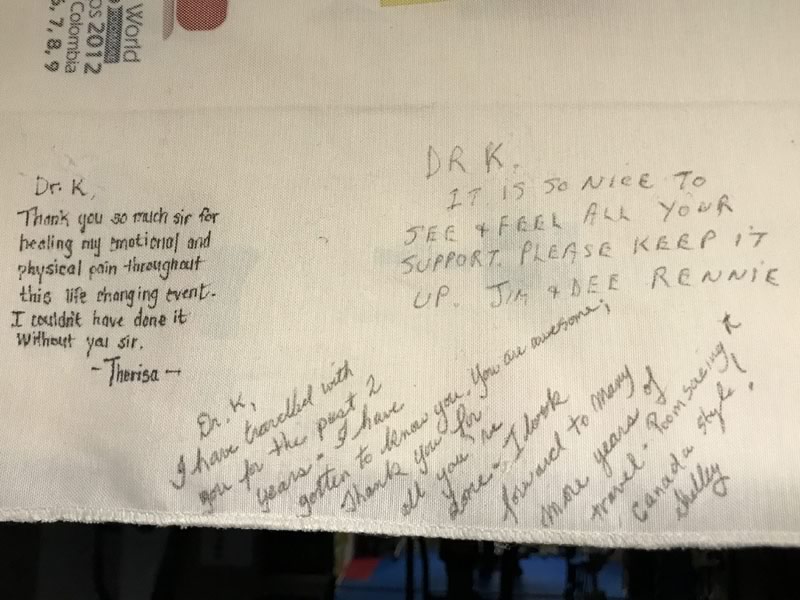 World
os 2012
Colombia
6, 7, 8, 9
Dr. K,
Thank you so much sir for
healing my emotional and
physical pain throughout
this life changing event.
I couldn't have done it
without you sir.
- Therisa -
DR K.
IT IS SO NICE TO
SEE & FEEL ALL YOUR
SUPPORT. PLEASE KEEP IT
UP. JIM & DEE RENNIE
Dr. K,
I have travelled with
you for the past 2
years - I have
gotten to know you. You are awesome,
Thank you for
all you're
done - I look
forward to many
more years of
travel - Room sharing
Canada style!
Shelley